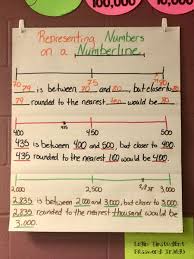 100,000
Representing Numbers
on a Numberline
70 75 79 80
79 is between 70 and 80, but closer to 80.
79 rounded to the nearest ten would be 80.
400 435 450 500
435 is between 400 and 500, but closer to 400.
435 rounded to the nearest 100 would be 400.
2,000 2,500 3,000
2,835 is between 2,000 and 3,000, but closer to
3,000. 2,835 rounded to the nearest thousand would be
3,000.